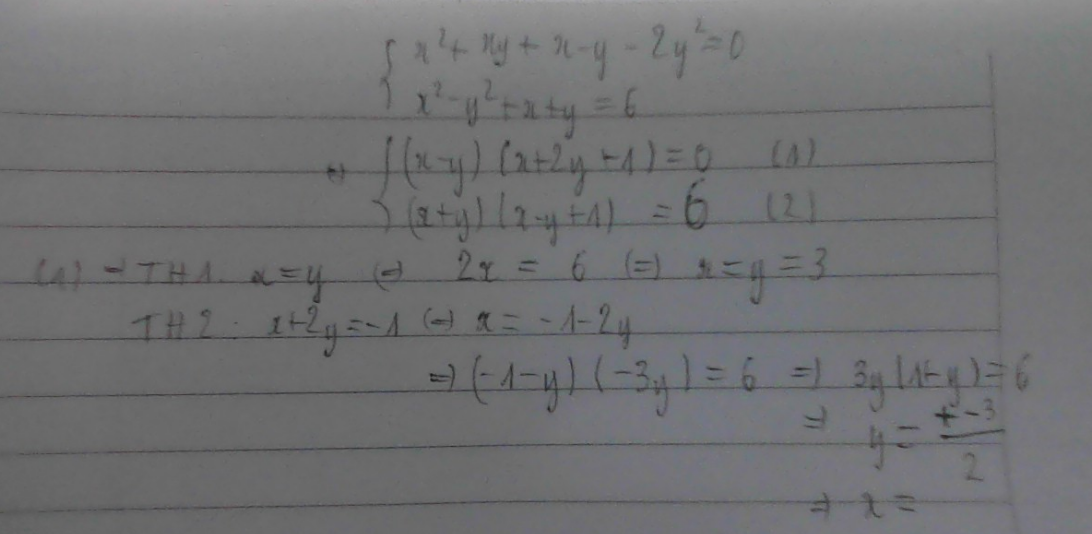 { x² + xy + x - y - 2y² = 0
{ x² - y² + x + y = 6
⇔ { (x-y) (x+2y+1) = 0 (1)
{ (x+y) (x-y+1) = 6 (2)
(1) ⇒ TH1. x = y ⇔ 2x = 6 (=) x = y = 3
TH2. x+2y = -1 (=) x = -1-2y
=) (-1-y) (-3y) = 6 =) 3y(1+y) = 6
=) y = + -3 / 2
=) x =